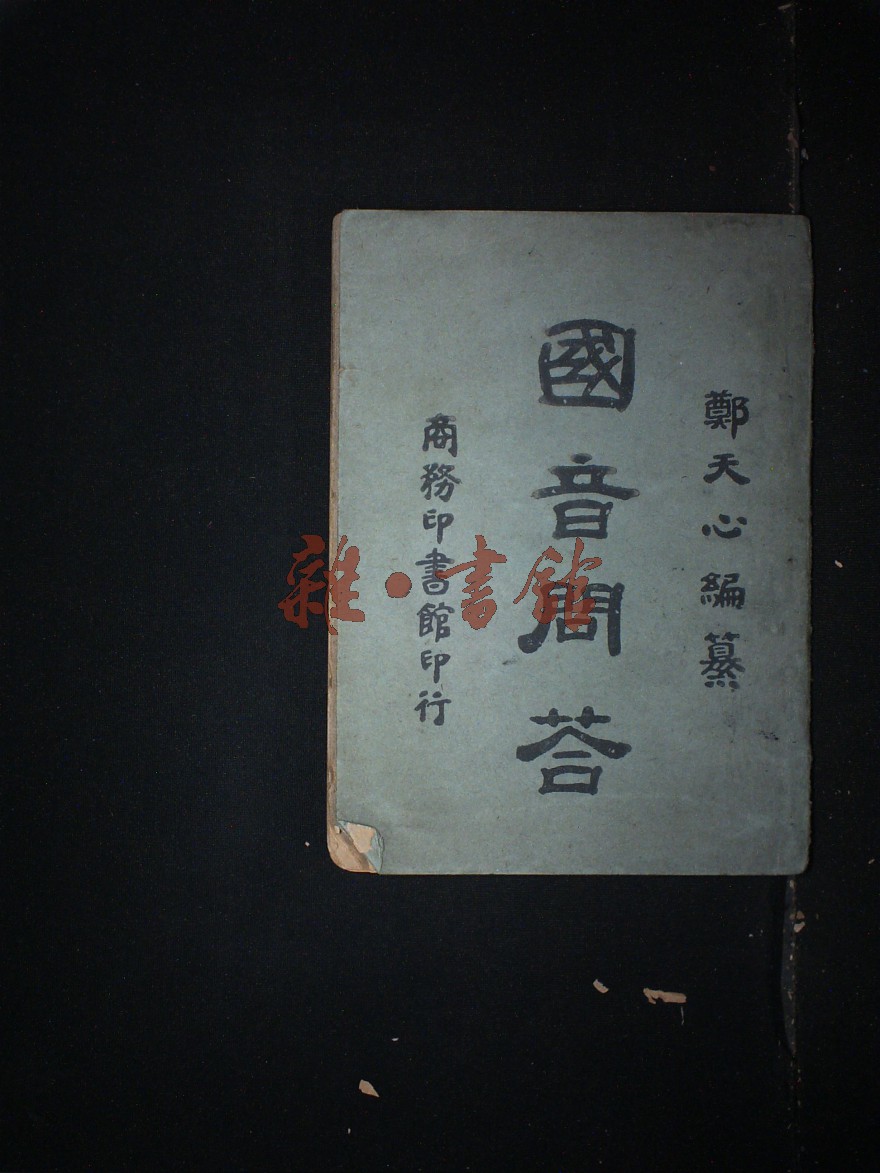 鄭天心編纂
國音問荅
商務印書館印行
雜·書館